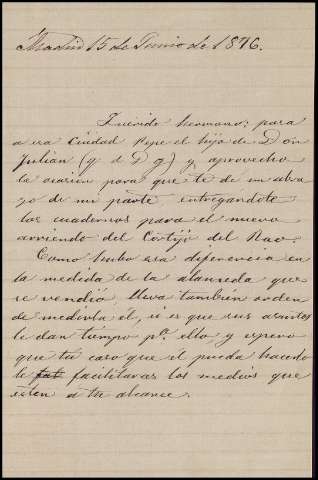 Madrid 15 de Junio de 1896.
Querido hermano: para
a esa Ciudad Pepe el hijo de Don
Julian (q d D g) y aprovecho
la ocasion para que te de un abra
zo de mi parte, entregandote
los cuadernos para el nuevo
arriendo del Cortijo del
Como hubo esa diferencia en
la medida de la alameda que
se vendió, lleva tambien orden
de medirla él, si es que sus asuntos
le dan tiempo pª ello y espero
que tu caso que el pueda hacerlo
le facilitaras los medios que
esten a tu alcance.